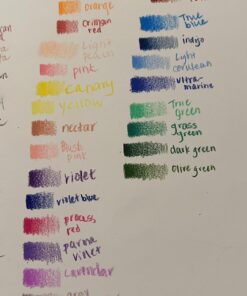 orange
Crimson
red
Light
peach
pink
canary
yellow
nectar
Blush
pink
violet
violet blue
process
red
parma
violet
Lavendar
gray
True
blue
indigo
Light
cerulean
ultra-
marine
True
green
grass
green
dark green
Olive green